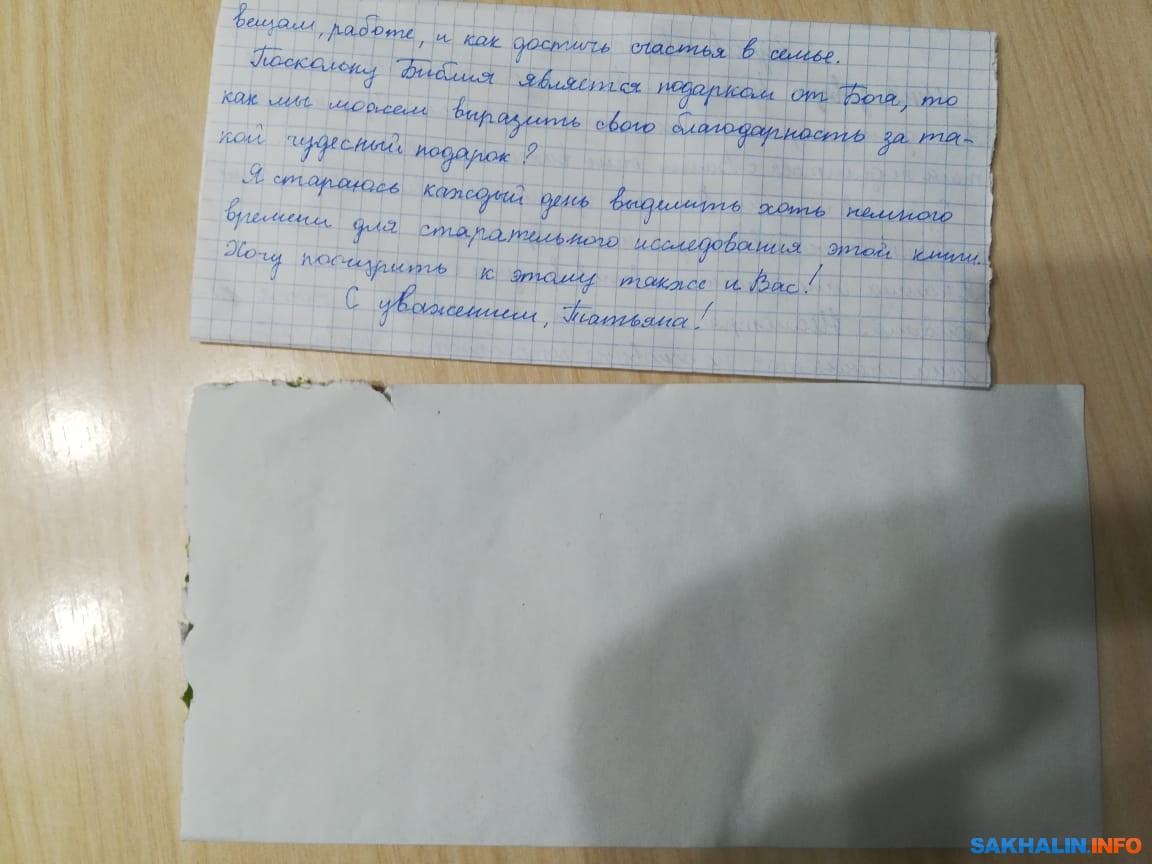 вещам, работе, и как достичь счастья в семье.
Поскольку Библия является подарком от Бога, то
как мы можем выразить свою благодарность за та-
кой чудесный подарок?
Я стараюсь каждый день выделить хоть немного
времени для старательного исследования этой книги.
Хочу поощрить к этому также и Вас!
С уважением, Татьяна!
SAKHALIN.INFO